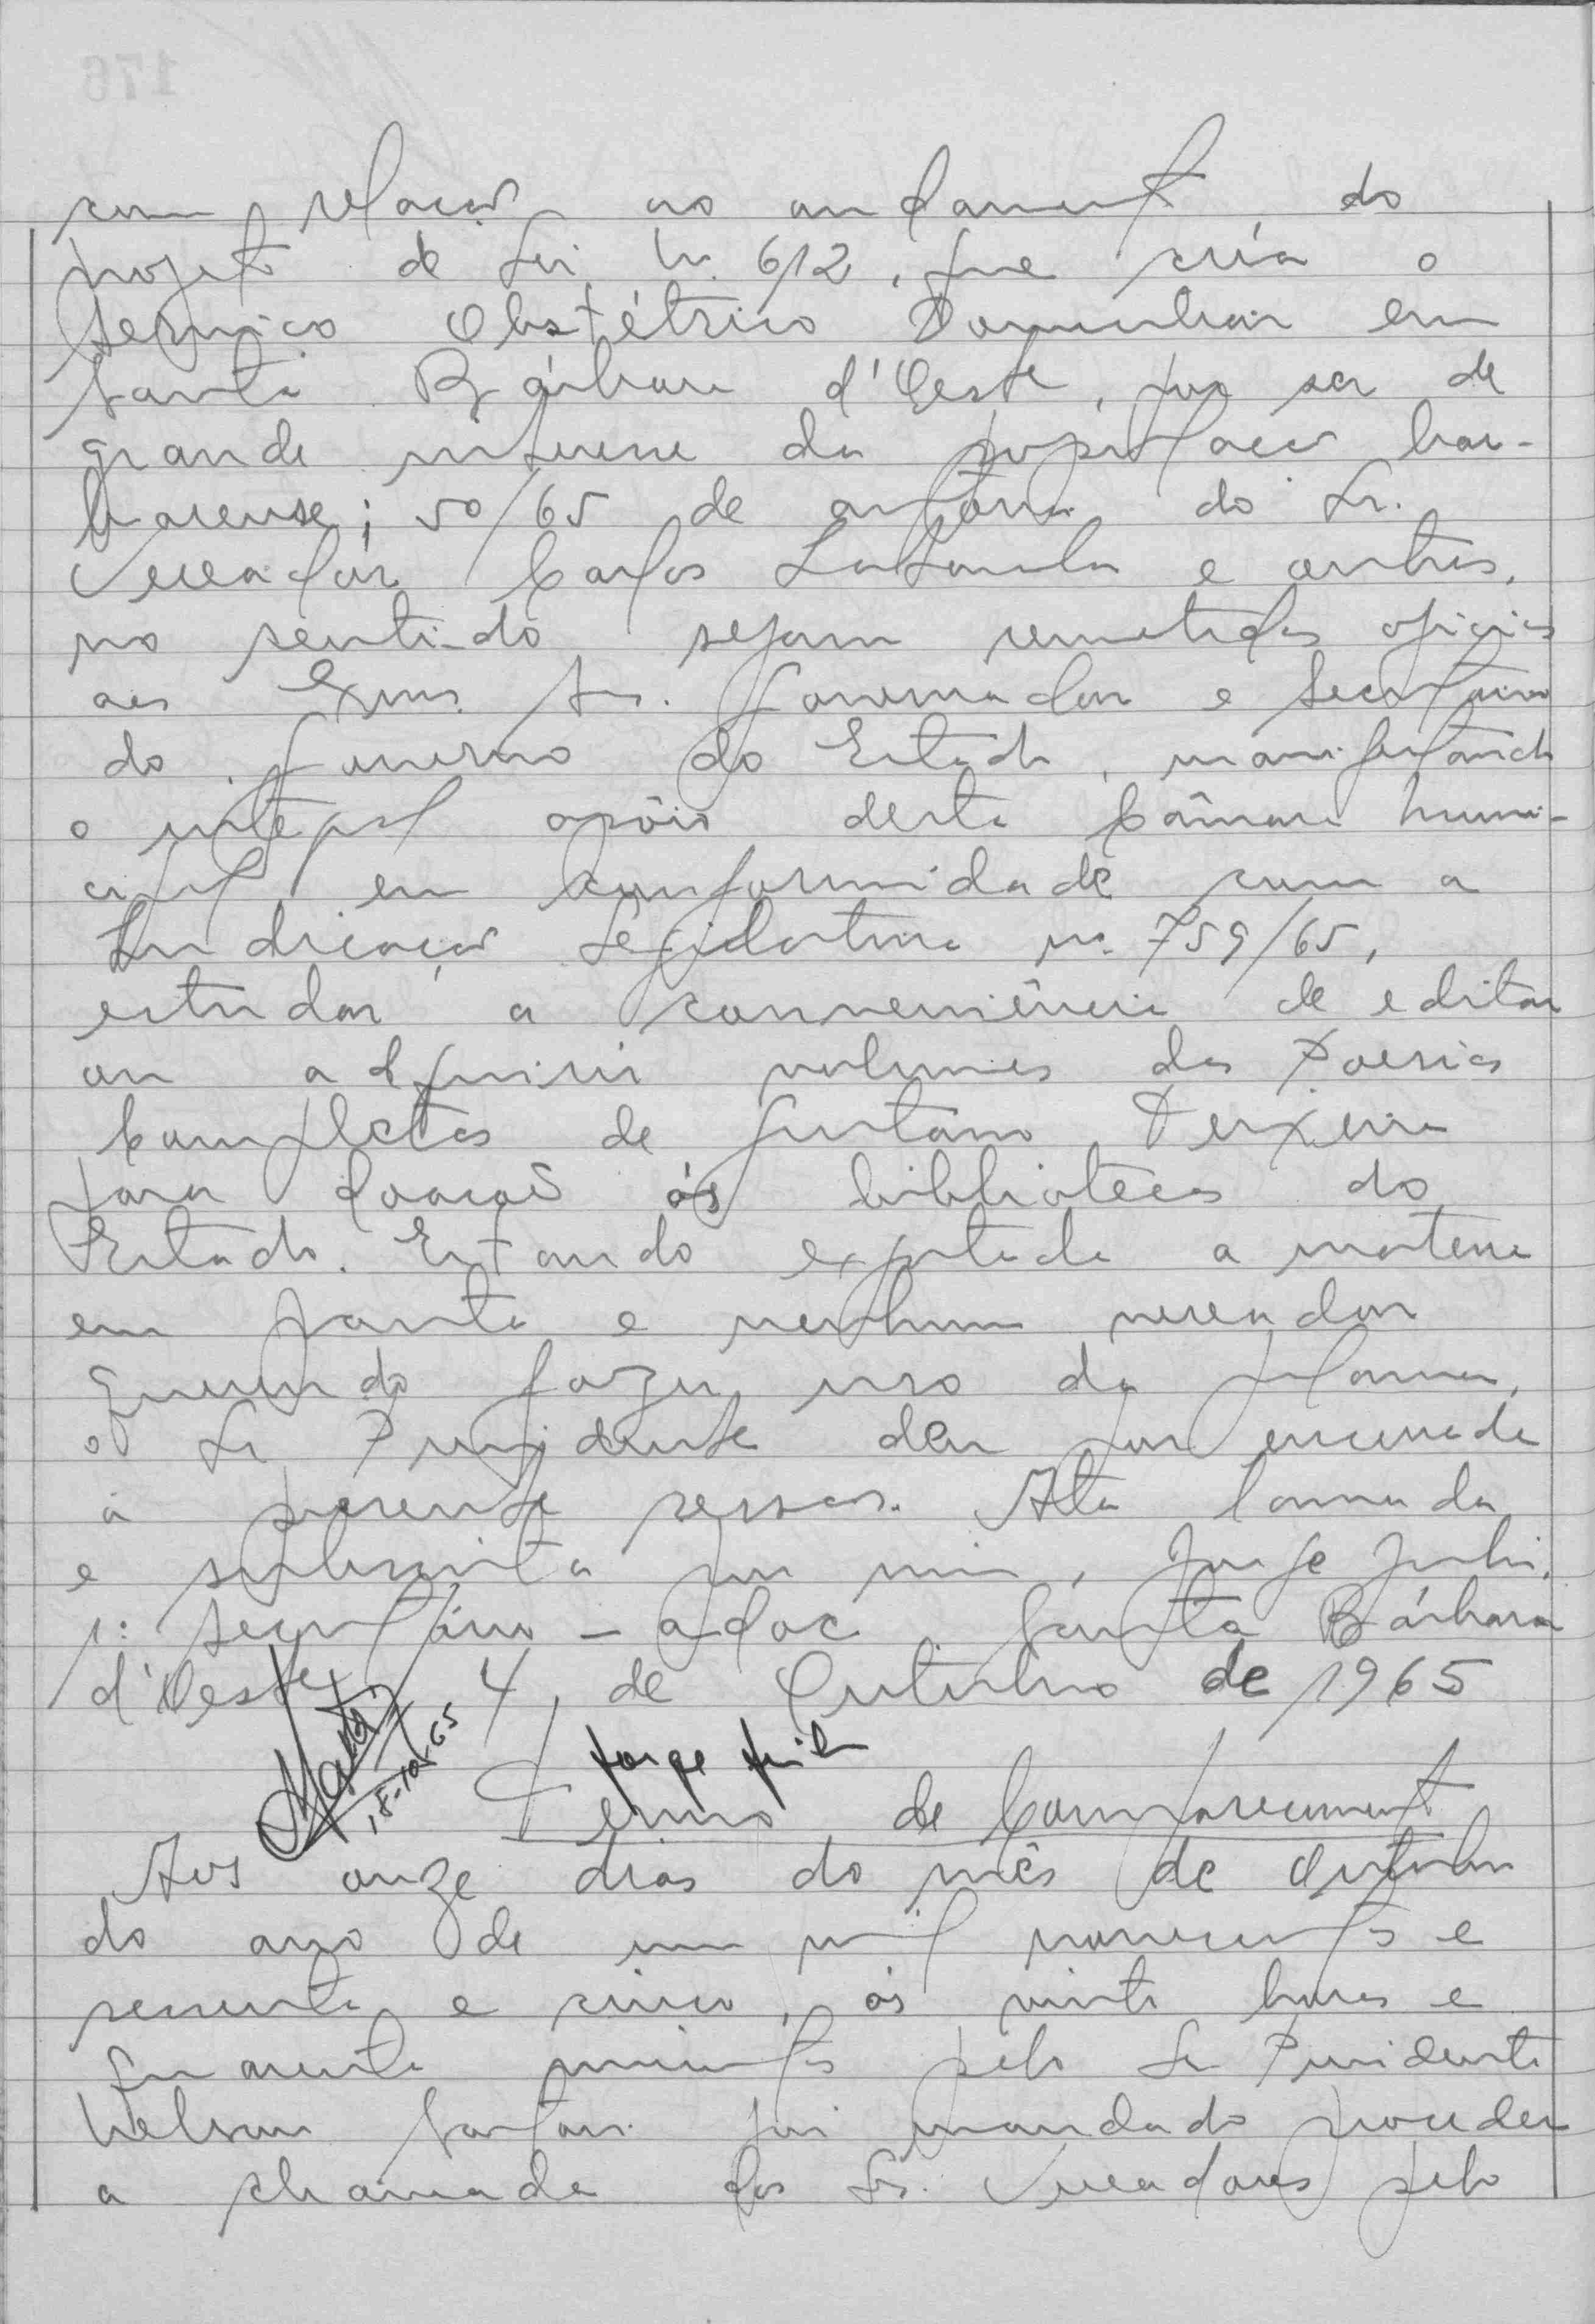 com relação ao andamento, do
projeto de Lei n. 612, que cría o
Serviço Obstétrico Domiciliar em
Santa Bárbara d'Oeste, por ser de
grande interesse da população bar-
barense; 50/65 de autoria do Sr.
Vereador Carlos e outros,
no sentido sejam remetidos oficios
aos Exmos. Srs. Governador e Secretário
do Governo do Estado, manifestando
o integral apôio desta Câmara Muni-
cipal em conformidade com a
Indicação Legislativa no. 759/65,
estudar a conveniência de editar
ou adquirir volumes das Poesias
Completas de Gustavo Teixeira
para doação ás bibliotecas do
Estado. Estando esgotada a materia
em pauta e nenhum vereador
querendo fazer uso da palavra,
o Sr Presidente deu por encerrada
a presente sessão. Ata lavrada
e subscrita por mim, Jorge Juli,
1º secretário - adoc Santa Bárbara
d'Oeste, 4, de Outubro de 1965
18-10-65
Jorge
Termo de Comparecimento
Aos onze dias do mês de Outubro
do ano de um mil novecentos e
sessenta e cinco, ás vinte horas e
quarenta minutos pelo Sr Presidente
Nelson foi mandado proceder
a chamada dos Srs. Vereadores pelo